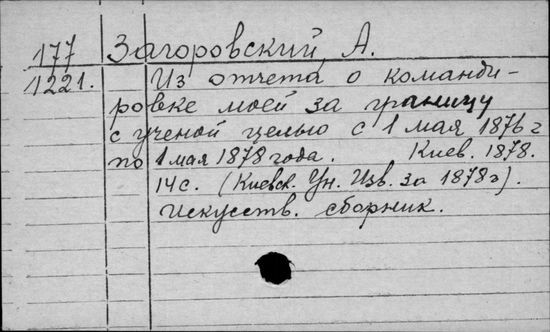 177 Загоровский, А.
1221. Из отчета о команди-
ровке моей за границу
с ученой целью с 1 мая 1876 г
по 1 мая 1878 года. Киев. 1878.
14 с. (Киевск. Ун. Изв. за 1878 г).
Искусств. сборник.